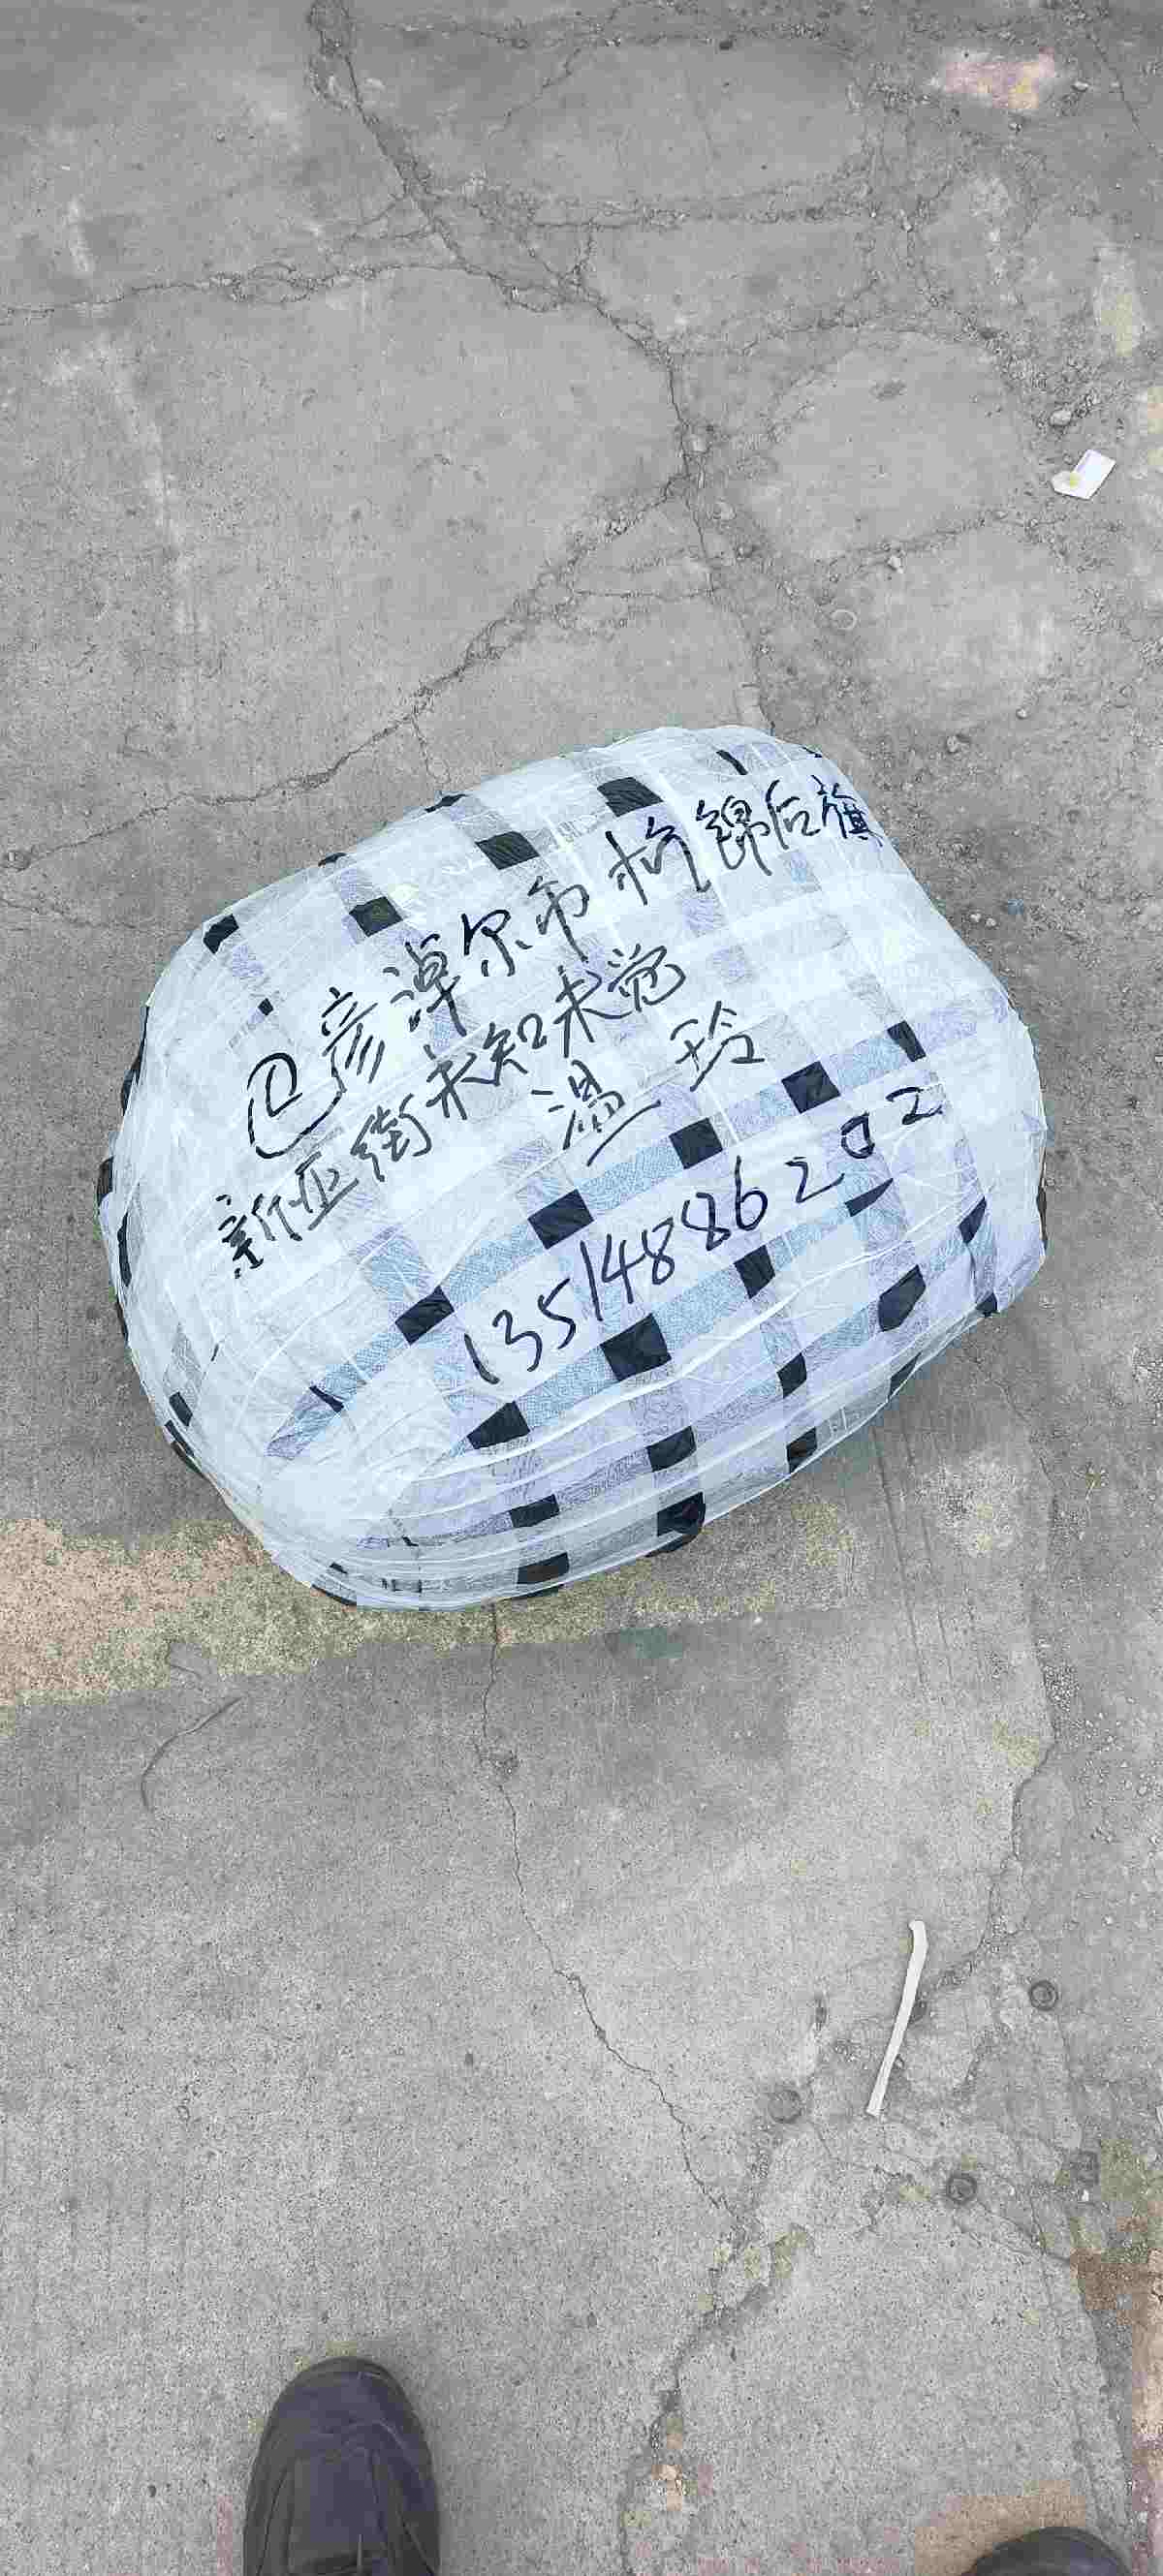 巴彦淖尔市杭锦后旗
新亚街未知未觉
温玲
13514886202